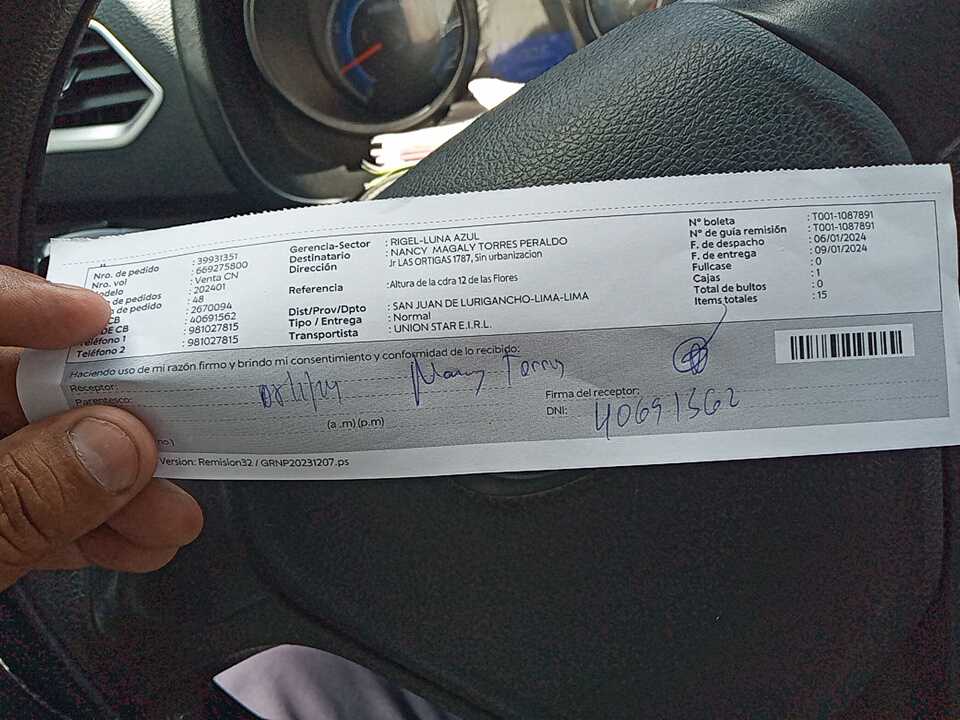 Nro. de pedido : 39931351
Nro. vol : 669275800
odelo : Venta CN
de pedidos : 202401
de pedido : 48
CB : 2670094
DE CB : 40691562
Teléfono 1 : 981027815
Teléfono 2 : 981027815
Gerencia-Sector : RIGEL-LUNA AZUL
Destinatario : NANCY MAGALY TORRES PERALDO
Dirección Jr LAS ORTIGAS 1787, Sin urbanizacion
Referencia :Altura de la cdra 12 de las Flores
Dist/Prov/Dpto : SAN JUAN DE LURIGANCHO-LIMA-LIMA
Tipo / Entrega : Normal
Transportista : UNION STAR E.I.R.L.
N° boleta : T001-1087891
N° de guía remisión : T001-1087891
F. de despacho : 06/01/2024
F. de entrega : 09/01/2024
Fullcase : 0
Cajas : 1
Total de bultos : 0
Items totales : 15
Haciendo uso de mi razón firmo y brindo mi consentimiento y conformidad de lo recibido:
Receptor: Nancy Torres
Parentesco:
(a .m) (p.m)
Firma del receptor:
DNI: 40691562
no.)
Version: Remision32 / GRNP20231207.ps